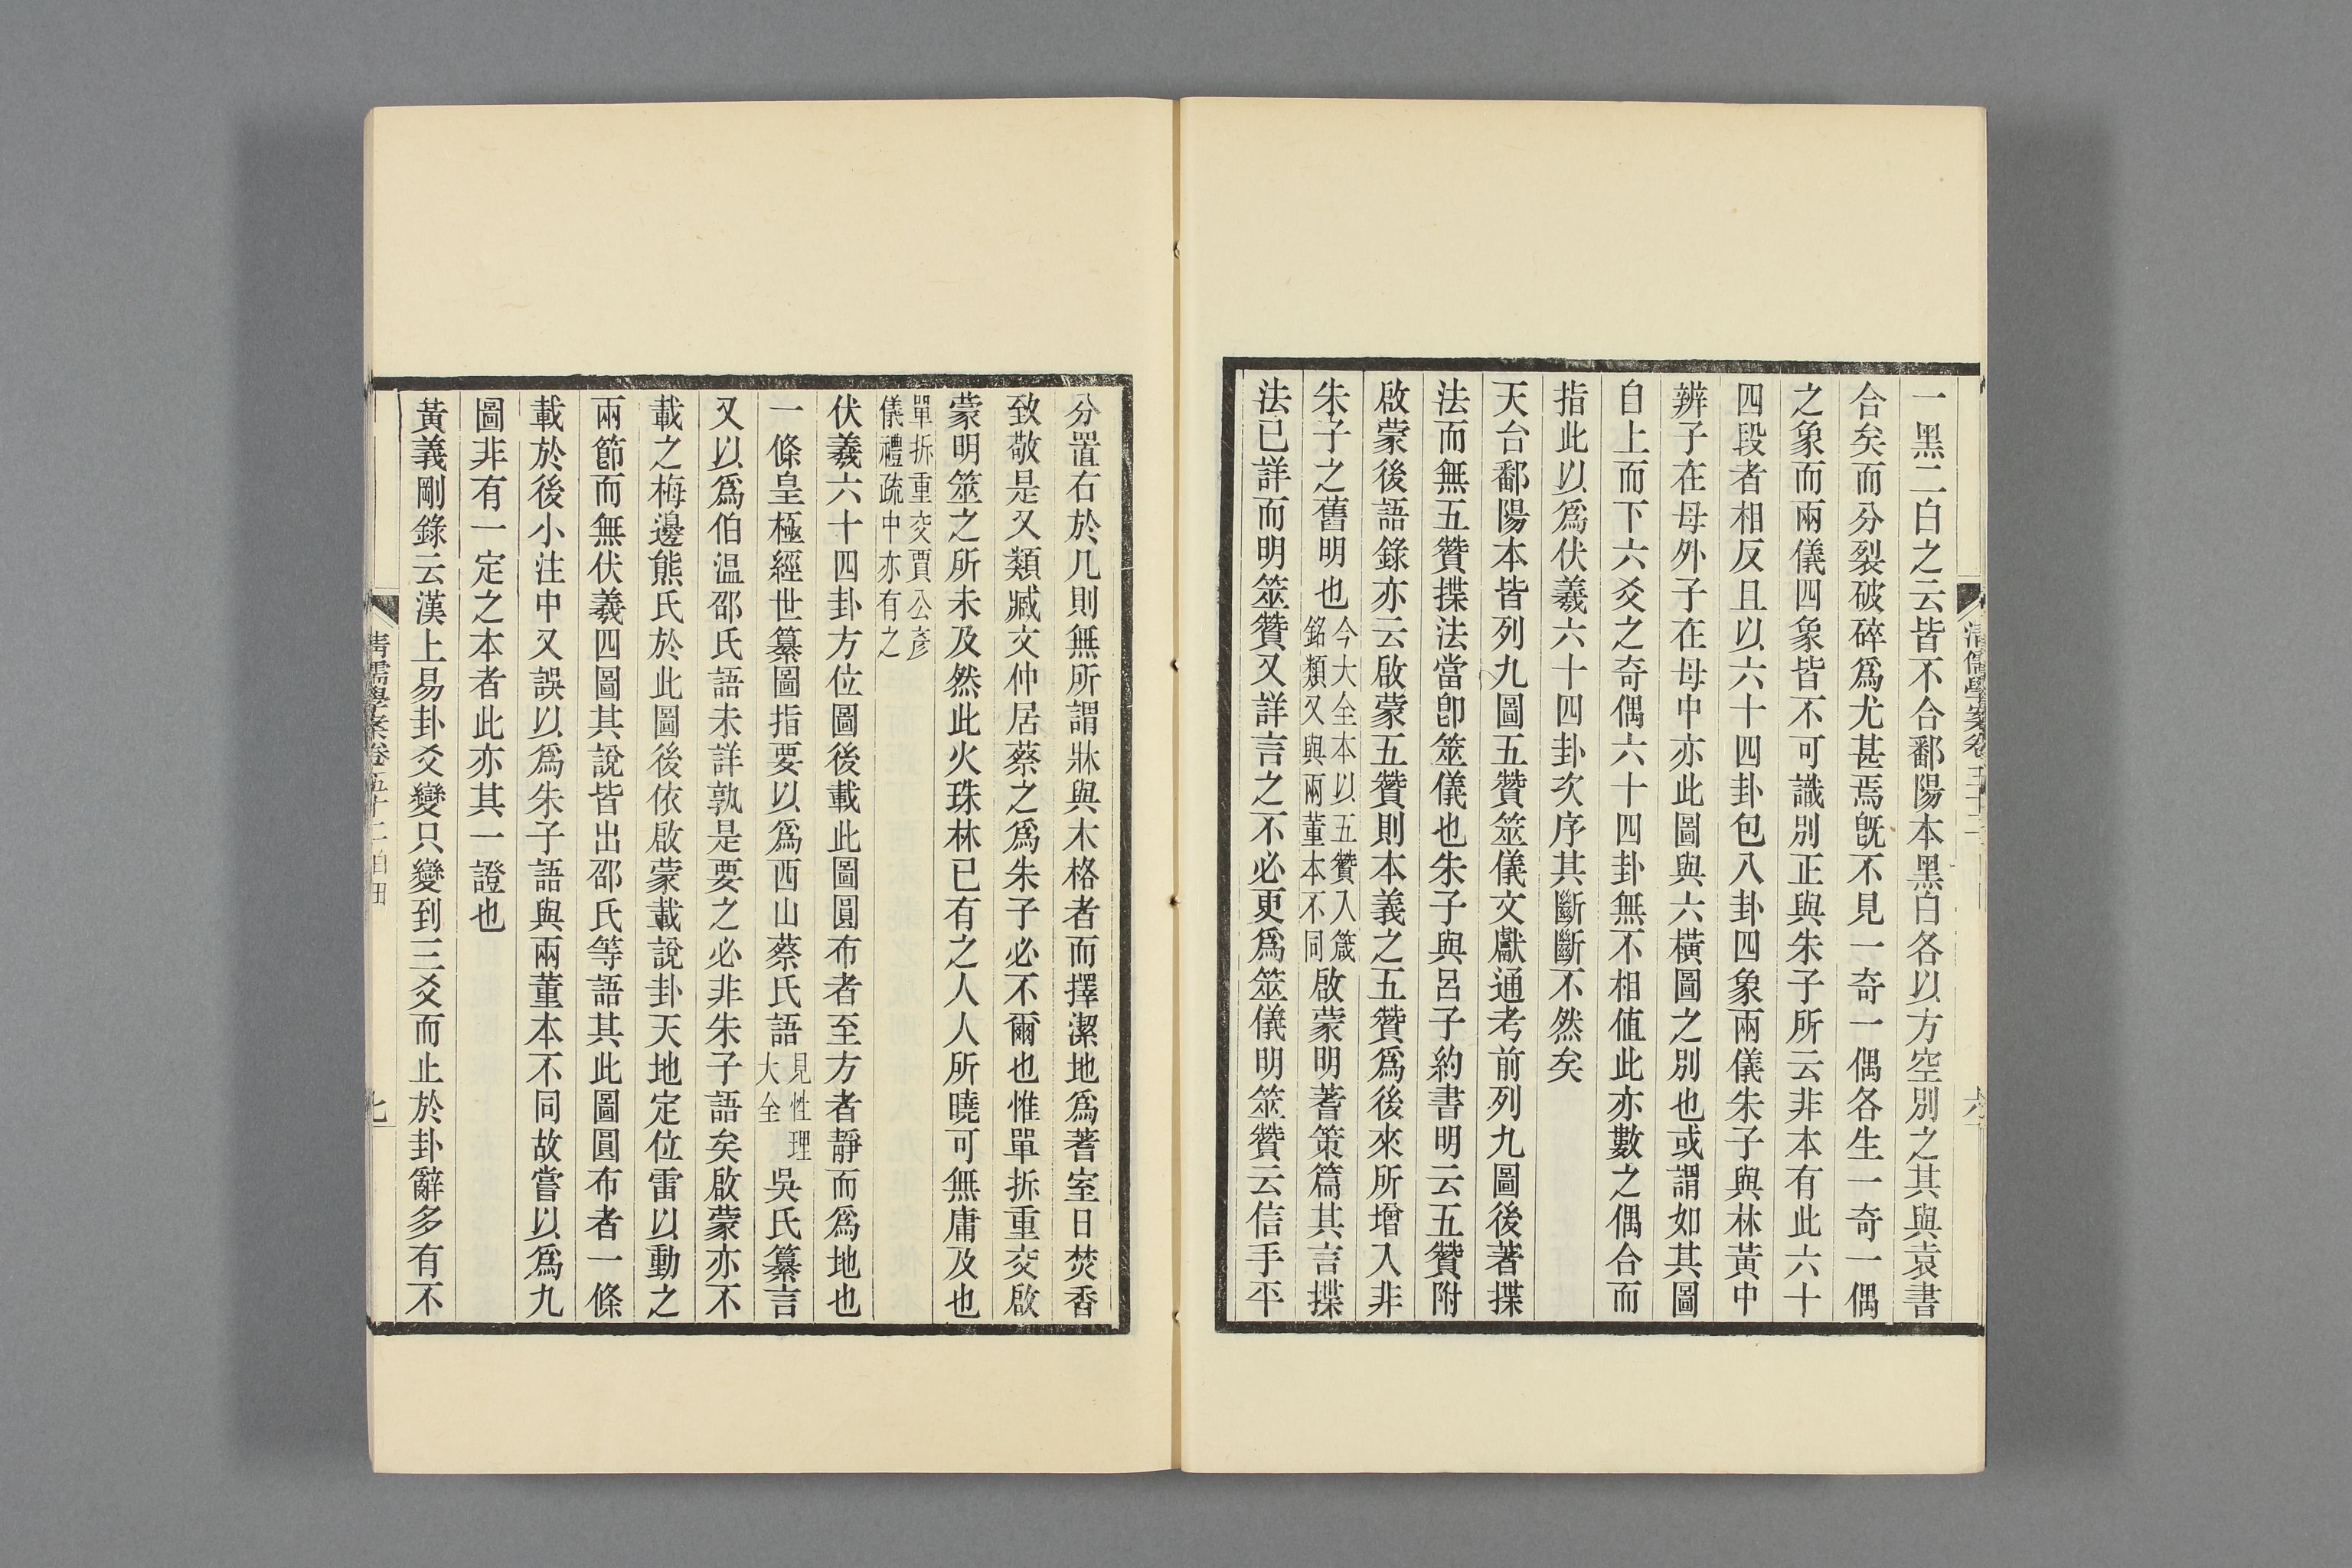 清儒學案卷五十二
六
一黑二白之云皆不合鄱陽本黑白各以方空別之其與袁書
合矣而分裂破碎爲尤甚焉旣不見一奇一偶各生一奇一偶
之象而兩儀四象皆不可識別正與朱子所云非本有此六十
四段者相反且以六十四卦包八卦四象兩儀朱子與林黃中
辨子在母外子在母中亦此圖與六橫圖之別也或謂如其圖
自上而下六爻之奇偶六十四卦無不相值此亦數之偶合而
指此以爲伏羲六十四卦次序其斷斷不然矣
天台鄱陽本皆列九圖五贊筮儀文獻通考前列九圖後著揲
法而無五贊揲法當卽筮儀也朱子與呂子約書明云五贊附
啟蒙後語錄亦云啟蒙五贊則本義之五贊爲後來所增入非
朱子之舊明也今大全本以五贊入箴銘類又與兩董本不同啟蒙明蓍策篇其言揲
法已詳而明筮贊又詳言之不必更爲筮儀明筮贊云信手平
分置右於几則無所謂牀與木格者而擇潔地爲蓍室日焚香
致敬是又類臧文仲居蔡之爲朱子必不爾也惟單拆重交啟
蒙明筮之所未及然此火珠林已有之人人所曉可無庸及也
單拆重交賈公彥儀禮疏中亦有之
伏羲六十四卦方位圖後載此圖圓布者至方者靜而爲地也
一條皇極經世纂圖指要以爲西山蔡氏語見性理大全吳氏纂言
又以爲伯温邵氏語未詳孰是要之必非朱子語矣啟蒙亦不
載之梅邊熊氏於此圖後依啟蒙載說卦天地定位雷以動之
兩節而無伏羲四圖其說皆出邵氏等語其此圖圓布者一條
載於後小注中又誤以爲朱子語與兩董本不同故嘗以爲九
圖非有一定之本者此亦其一證也
黃義剛錄云漢上易卦爻變只變到三爻而止於卦辭多有不
清儒學案卷五十二 白田
七